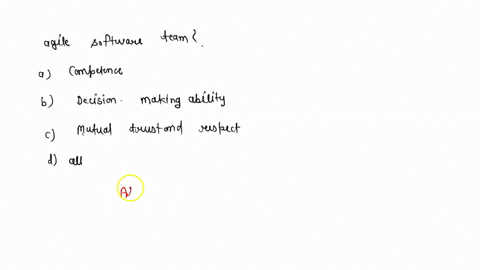 agile software team?.
a) Competence
b) Decision. making ability
c) Mutual trust and respect
d) all
A